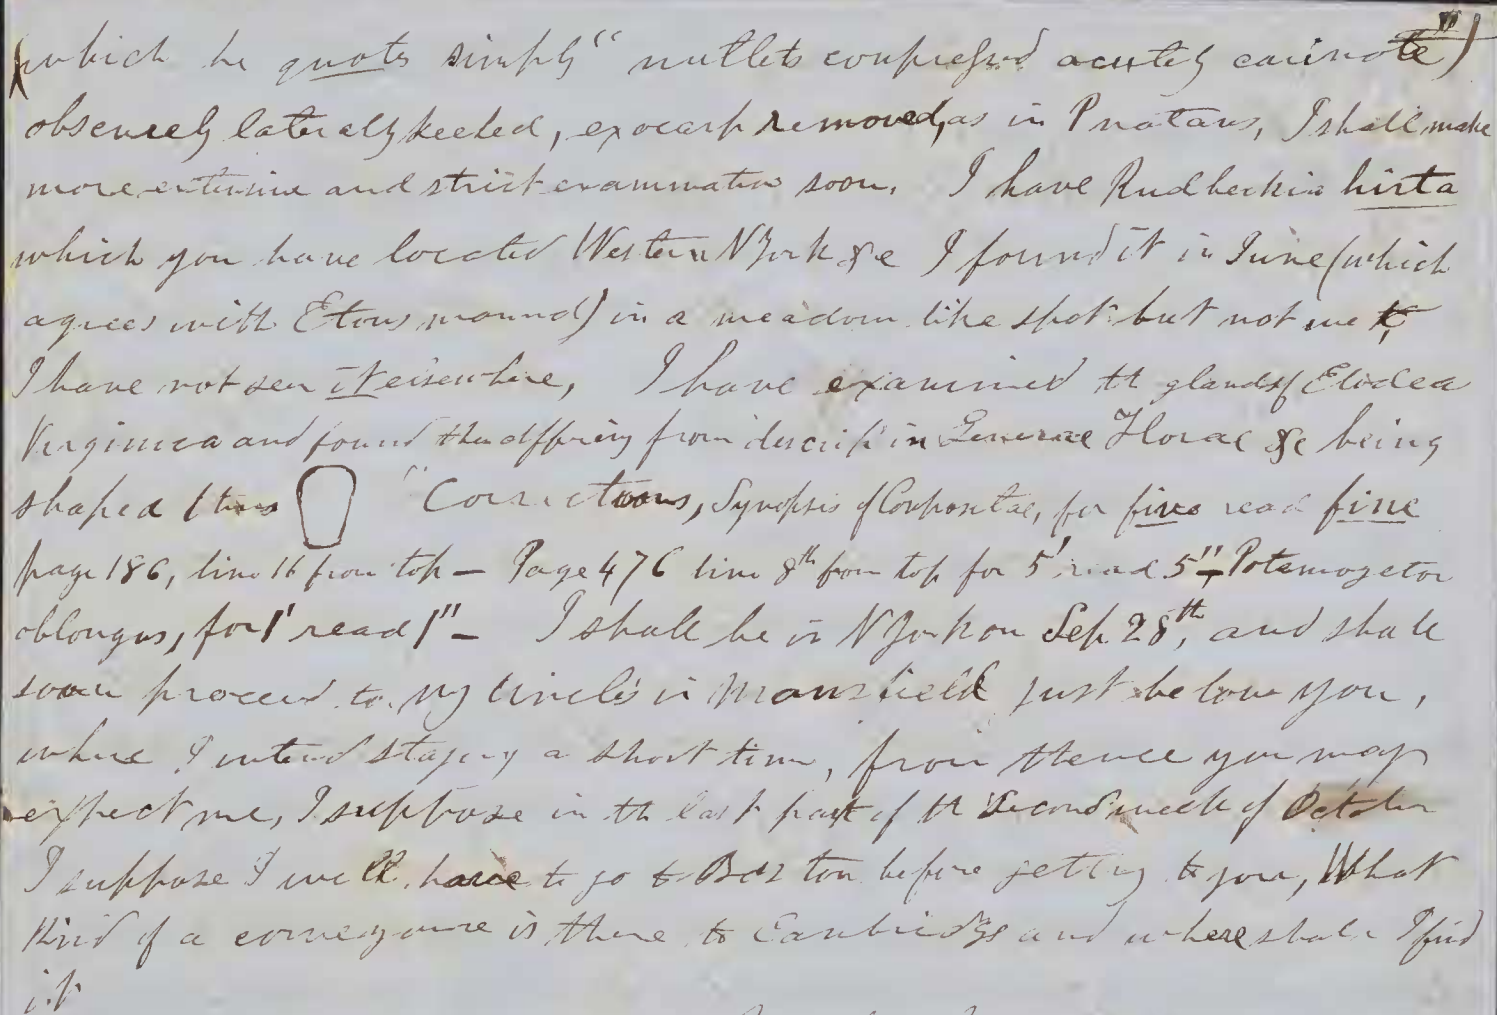 (which he quotes simply "nutlets compressed acutely carinate")
obscurely laterally keeled, exocarp removed, as in P natans, I shall make
more extensive and strict examination soon. I have Rudbeckia hirta
which you have located Western N York &c I found it in June (which
agrees with Etons manual) in a meadow like spot but not wet,
I have not seen it elsewhere, I have examined th glands of Elodea
Virginica and found them differing from descrip in Generae Florae &c being
shaped thus "Corrections, Synopsis of Compositae, for five read fine
page 186, line 16 from top – Page 476 line 8th from top for 5' read 5" – Potamogeton
oblongus, for 1' read 1" – I shall be in N York on Sep 28th, and shall
soon proceed to my Uncle's in Mansfield just below you,
where I intend staying a short time, from thence you may
expect me, I suppose in th last part of th second week of October
I suppose I will have to go to Boston before getting to you, What
Kind of a conveyance is there to Cambridge and where shall I find
it